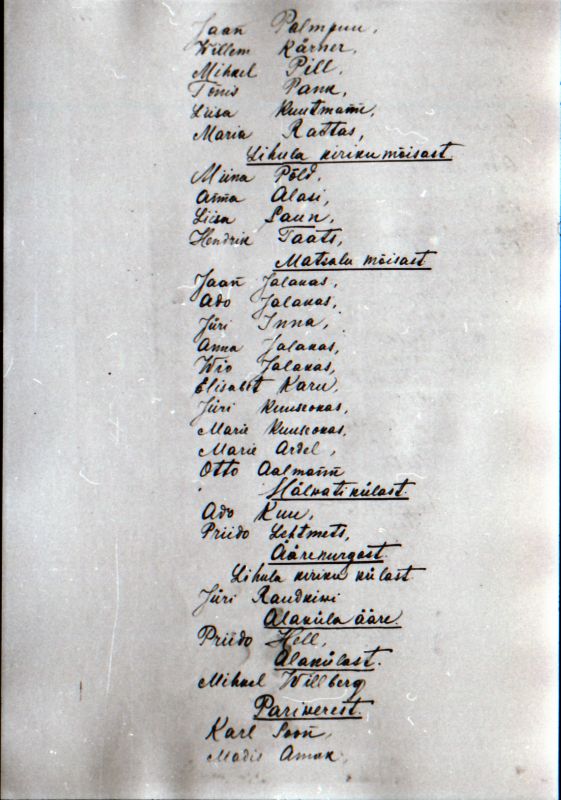 Jaan̄ Palmpuu,
Willem Kärner,
Mihkel Pill,
Tõnis Pank,
Liisa Kuutmann̄,
Maria Rattas,
Lihula kirikumõisast
Miina Põld,
Anna Alasi,
Liisa Laun,
Hendrik Taats,
Matsalu mõisast
Jaan̄ Jalakas,
Ado Jalakas,
Jüri Inna,
Anna Jalakas,
Wio Jalakas,
Elisabet Karu,
Jüri Kuuseokas,
Marie Kuuseokas,
Marie Ardel,
Otto Aalmann̄
Hälvati külast.
Ado Kuu,
Priido Lehtmets,
Äärenurgast.
Lihula kiriku külast
Jüri Raudkiwi
Alaküla ääre.
Priido Hell,
Alakülast.
Mihkel Willberg
Pariverest.
Karl Soon̄,
Madis Amak,